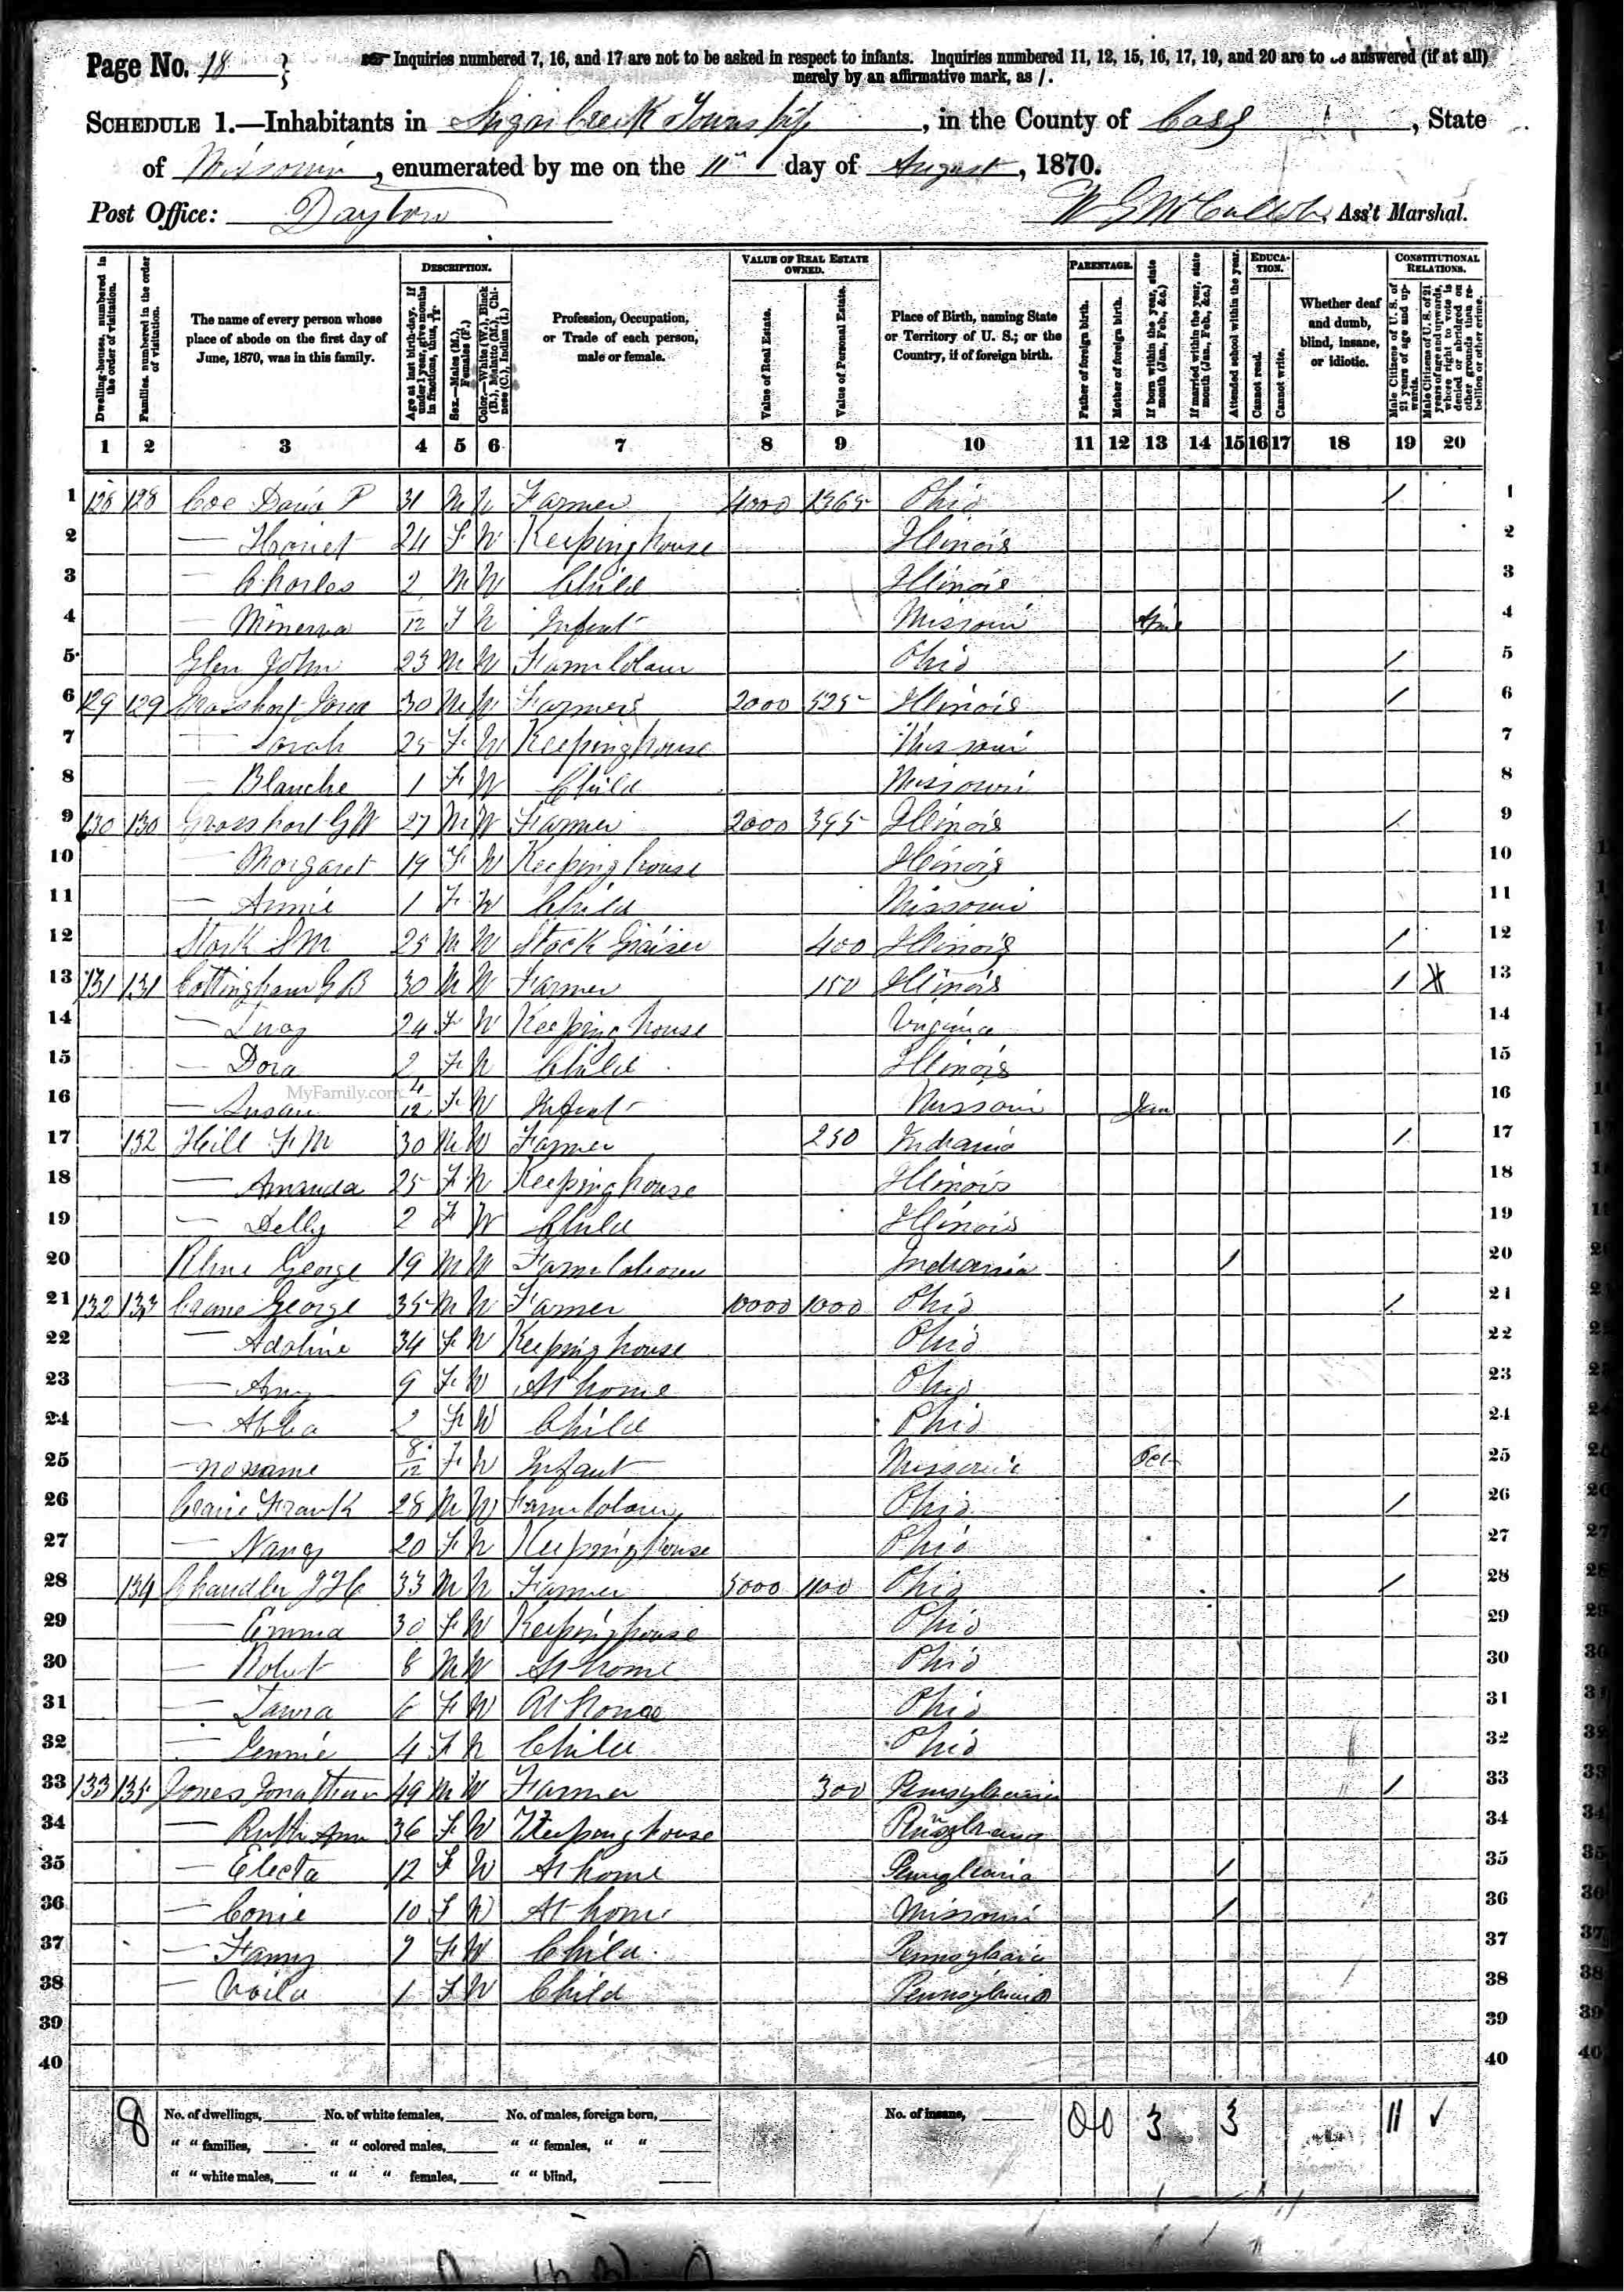 Page No. 18
Inquiries numbered 7, 16, and 17 are not to be asked in respect to infants. Inquiries numbered 11, 12, 15, 16, 17, 19, and 20 are to be answered (if at all)
merely by an affirmative mark, as /.
SCHEDULE 1.—Inhabitants in Township, in the County of Cass, State
of Missouri, enumerated by me on the 11 day of August, 1870.
Post Office: Dayton Ass't Marshal.
Dwelling-houses, numbered in the order of visitation.
Families, numbered in the order of visitation.
The name of every person whose place of abode on the first day of June, 1870, was in this family.
DESCRIPTION.
Age at last birth-day. If under 1 year, give months in fractions, thus,
Sex.—Males (M.), Females (F.)
Color.—White (W.), Black (B.), Mulatto (M.), Chinese (C.), Indian (I.)
Profession, Occupation, or Trade of each person, male or female.
VALUE OF REAL ESTATE OWNED.
Value of Real Estate.
Value of Personal Estate.
Place of Birth, naming State or Territory of U. S.; or the Country, if of foreign birth.
PARENTAGE.
Father of foreign birth.
Mother of foreign birth.
If born within the year, state month (Jan., Feb., &c.)
If married within the year, state month (Jan., Feb., &c.)
Attended school within the year.
EDUCATION.
Cannot read.
Cannot write.
Whether deaf and dumb, blind, insane, or idiotic.
CONSTITUTIONAL RELATIONS.
Male Citizens of U. S. of 21 years of age and upwards.
Male Citizens of U. S. of 21 years of age and upwards, whose right to vote is denied or abridged on other grounds than rebellion or other crime.
1 2 3 4 5 6 7 8 9 10 11 12 13 14 15 16 17 18 19 20
1 128 128 Coe P 31 M W Farmer 4000 1365 Ohio / 1
2 — Hariet 24 F W Keeping house Illinois 2
3 — Charles 2 M W Child Illinois 3
4 — Minerva /12 F W Infant Missouri 4
5 Glen John 23 M W Ohio / 5
6 129 129 30 M W Farmer 2000 525 Illinois / 6
7 — Sarah 25 F W Keeping house Missouri 7
8 — Blanche 1 F W Child Missouri 8
9 130 130 Grosshart G W 27 M W Farmer 2000 395 Illinois / 9
10 — Margaret 19 F W Keeping house Illinois 10
11 — Annie 1 F W Child Missouri 11
12 S M 25 M W Stock 400 Illinois / 12
13 131 131 Cottingham G B 30 M W Farmer 150 Illinois / 13
14 — 24 F W Keeping house Virginia 14
15 — Dora 2 F W Child Illinois 15
MyFamily.com
16 — Susan 4/12 F W Infant Missouri Jan 16
17 132 Hill F M 30 M W Farmer 250 Indiana / 17
18 — Amanda 25 F W Keeping house Illinois 18
19 — Delly 2 F W Child Illinois 19
20 George 19 M W Indiana / 20
21 132 133 Crane George 35 M W Farmer 10000 1000 Ohio / 21
22 — Adaline 34 F W Keeping house Ohio 22
23 — Amy 9 F W At home Ohio 23
24 — 2 F W Child Ohio 24
25 — no name 8/12 F W Infant Missouri Oct 25
26 Frank 28 M W Ohio / 26
27 — Nancy 20 F W Keeping house Ohio 27
28 134 Chandler 33 M W Farmer 5000 1100 Ohio / 28
29 — Emma 30 F W Keeping house Ohio 29
30 — Robert 8 M W At home Ohio 30
31 — Laura 6 F W At home Ohio 31
32 — Jennie 4 F W Child Ohio 32
33 133 135 Jones Jonathan 49 M W Farmer 300 Pennsylvania / 33
34 — Ruth Ann 36 F W Keeping house Pennsylvania 34
35 — Electa 12 F W At home Pennsylvania / 35
36 — 10 F W At home Missouri / 36
37 — Fanny 7 F W Child Pennsylvania 37
38 — 1 F W Child Pennsylvania 38
39 39
40 40
8 No. of dwellings, No. of white females, No. of males, foreign born, No. of insane, 0 0 3 3 11 ✓
" " families, " " colored males, " " females, " "
" " white males, " " " females, " " blind,